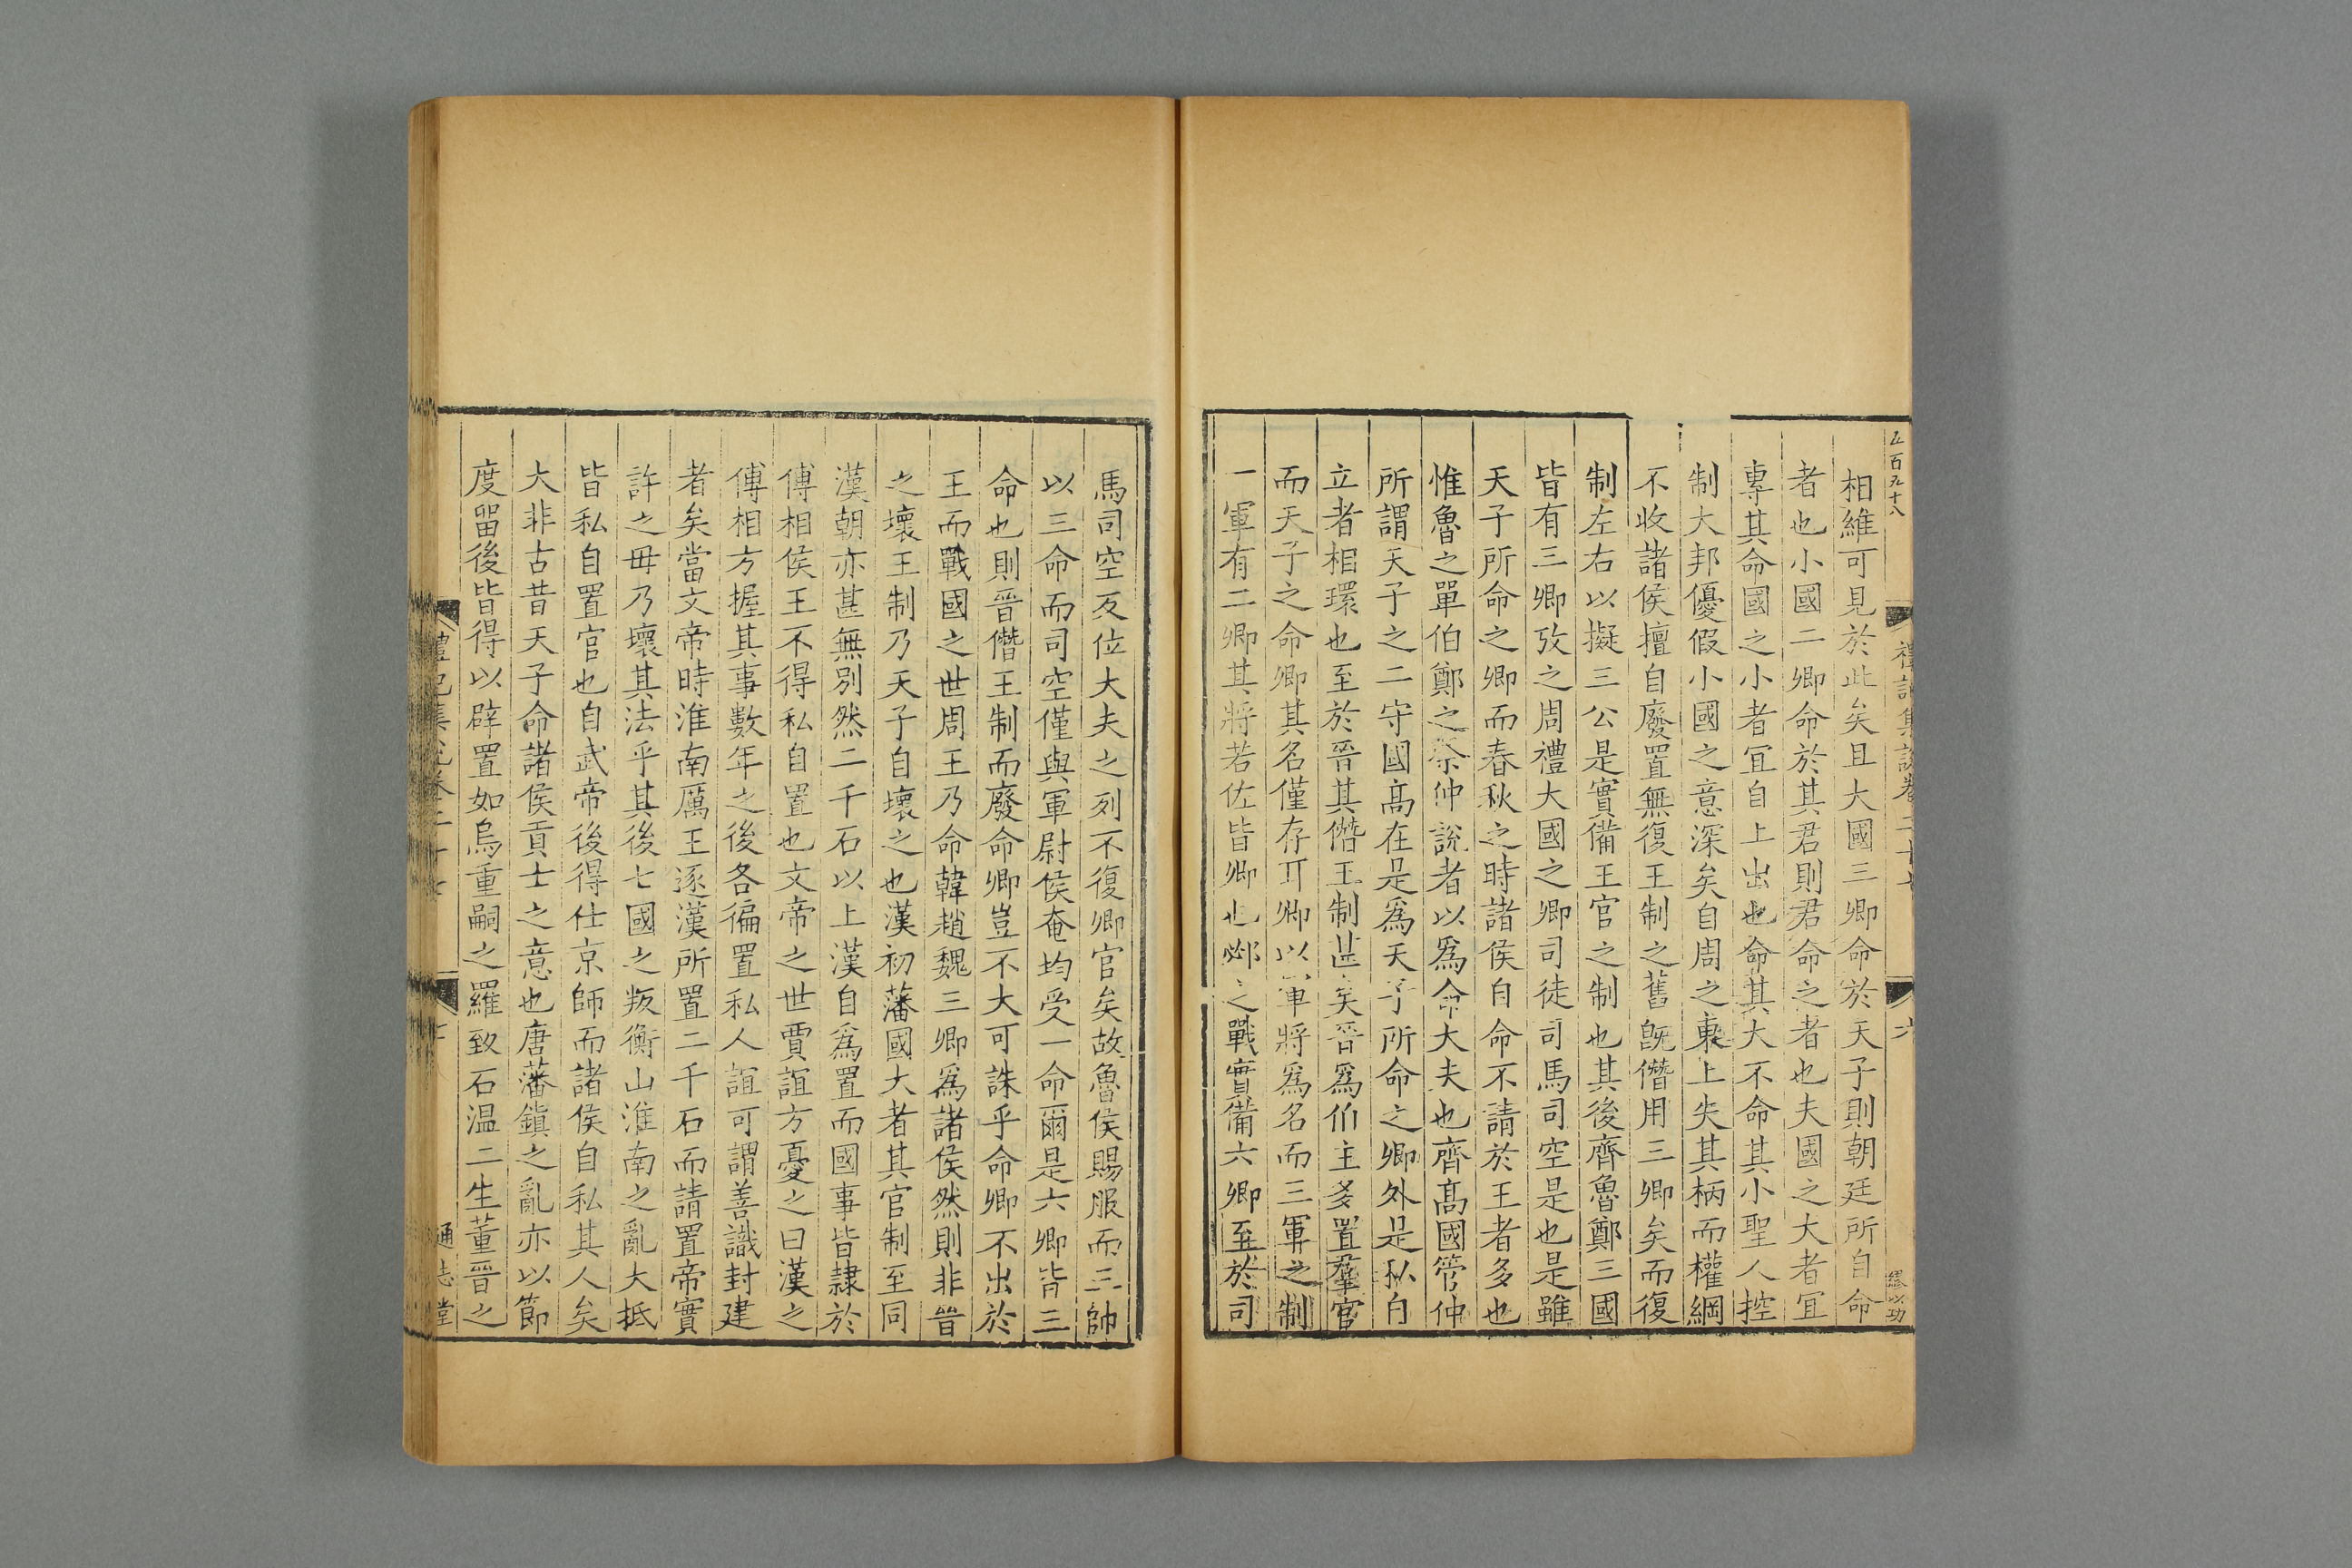 五百九十八
相維可見於此矣且大國三卿命於天子則朝廷所自命
者也小國二卿命於其君則君命之者也夫國之大者宜
專其命國之小者宜自上出也命其大不命其小聖人控
制大邦優假小國之意深矣自周之東上失其柄而權綱
不收諸侯擅自廢置無復王制之舊旣僭用三卿矣而復
制左右以擬三公是實備王官之制也其後齊魯鄭三國
皆有三卿攷之周禮大國之卿司徒司馬司空是也是雖
天子所命之卿而春秋之時諸侯自命不請於王者多也
惟魯之單伯鄭之祭仲說者以爲命大夫也齊高國管仲
所謂天子之二守國高在是爲天子所命之卿外是私自
立者相環也至於晉其僭王制甚矣晉爲伯主多置羣官
而天子之命卿其名僅存耳卿以軍將爲名而三軍之制
一軍有二卿其將若佐皆卿也邲之戰實備六卿至於司
馬司空亥位大夫之列不復卿官矣故魯侯賜服而三帥
以三命而司空僅與軍尉侯奄均受一命爾是六卿皆三
命也則晉僭王制而廢命卿豈不大可誅乎命卿不出於
王而戰國之世周王乃命韓趙魏三卿爲諸侯然則非晉
之壞王制乃天子自壞之也漢初藩國大者其官制至同
漢朝亦甚無別然二千石以上漢自爲置而國事皆隷於
傅相侯王不得私自置也文帝之世賈誼方憂之曰漢之
傅相方握其事數年之後各徧置私人誼可謂善識封建
者矣當文帝時淮南厲王逐漢所置二千石而請置帝實
許之毋乃壞其法乎其後七國之叛衡山淮南之亂大抵
皆私自置官也自武帝後得仕京師而諸侯自私其人矣
大非古昔天子命諸侯貢士之意也唐藩鎭之亂亦以節
度留後皆得以辟置如烏重嗣之羅致石温二生董晉之
通志堂